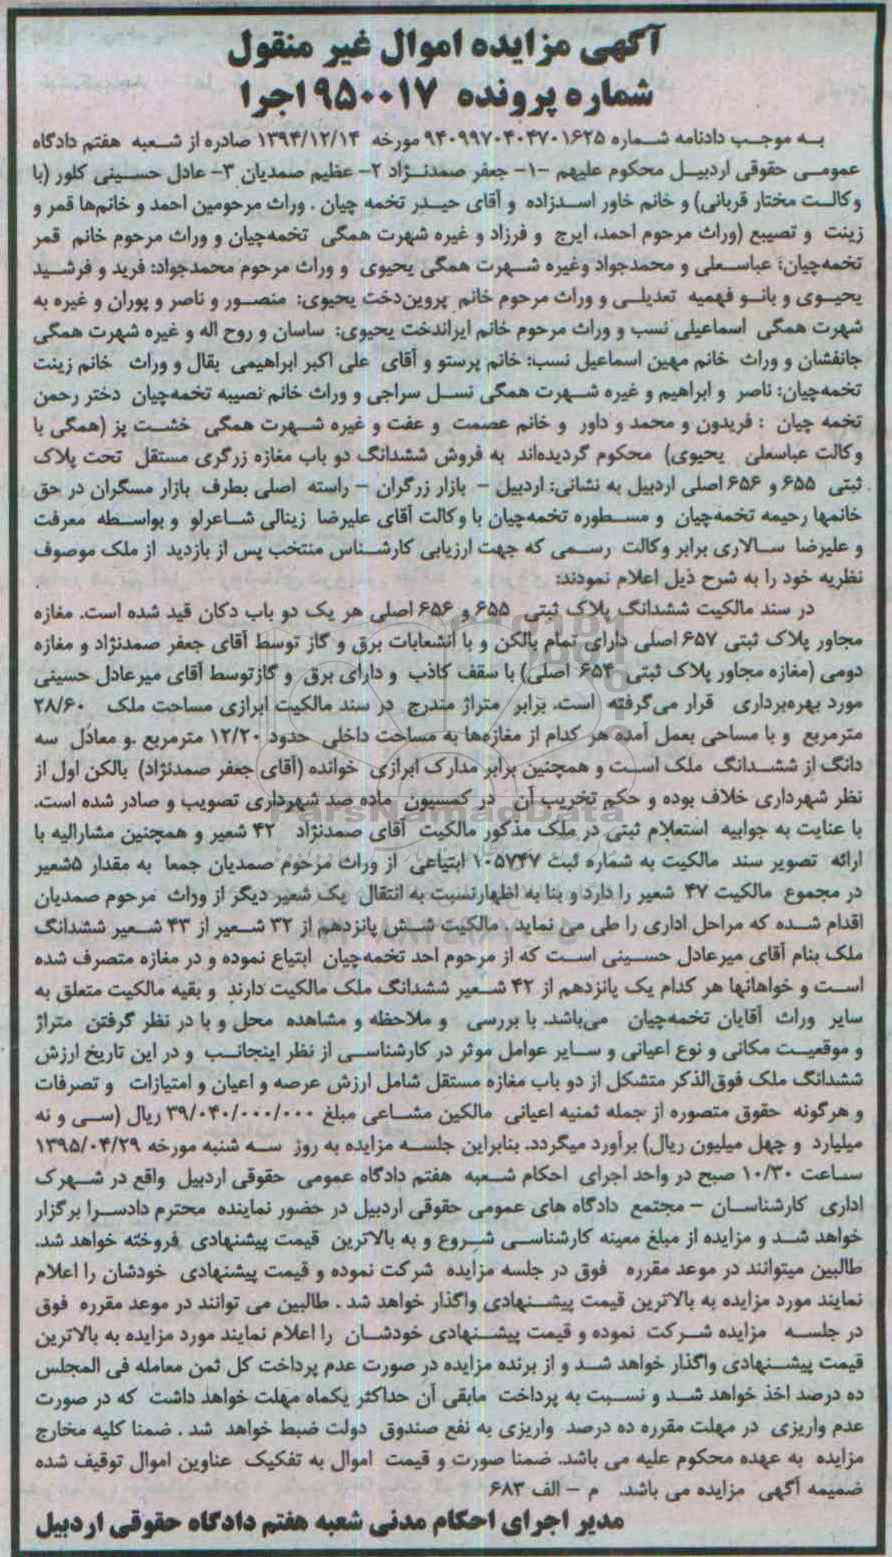 آگهی مزایده اموال غیر منقول
شماره پرونده ۹۵۰۰۱۷ اجرا
به موجب دادنامه شماره ۹۴۰۹۹۷۰۴۰۴۷۰۱۶۲۵ مورخه ۱۳۹۴/۱۲/۱۴ صادره از شعبه هفتم دادگاه
عمومی حقوقی اردبیل محکوم علیهم -۱- جعفر صمدنژاد ۲- عظیم صمدیان ۳- عادل حسینی کلور (با
وکالت مختار قربانی) و خانم خاور اسدزاده و آقای حیدر تخمه چیان . وراث مرحومین احمد و خانم‌ها قمر و
زینت و تصیبع (وراث مرحوم احمد، ایرج و فرزاد و غیره شهرت همگی تخمه‌چیان و وراث مرحوم خانم قمر
تخمه‌چیان؛ عباسعلی و محمدجواد وغیره شهرت همگی یحیوی و وراث مرحوم محمدجواد: فرید و فرشید
یحیوی و بانو فهمیه تعدیلی و وراث مرحوم خانم پروین‌دخت یحیوی: منصور و ناصر و پوران و غیره به
شهرت همگی اسماعیلی نسب و وراث مرحوم خانم ایراندخت یحیوی: ساسان و روح اله و غیره شهرت همگی
جانفشان و وراث خانم مهین اسماعیل نسب: خانم پرستو و آقای علی اکبر ابراهیمی بقال و وراث خانم زینت
تخمه‌چیان: ناصر و ابراهیم و غیره شهرت همگی نسل سراجی و وراث خانم نصیبه تخمه‌چیان دختر رحمن
تخمه چیان : فریدون و محمد و داور و خانم عصمت و عفت و غیره شهرت همگی خشت پز (همگی با
وکالت عباسعلی یحیوی) محکوم گردیده‌اند به فروش ششدانگ دو باب مغازه زرگری مستقل تحت پلاک
ثبتی ۶۵۵ و ۶۵۶ اصلی اردبیل به نشانی: اردبیل - بازار زرگران - راسته اصلی بطرف بازار مسگران در حق
خانمها رحیمه تخمه‌چیان و مسطوره تخمه‌چیان با وکالت آقای علیرضا زینالی شاعرلو و بواسطه معرفت
و علیرضا سالاری برابر وکالت رسمی که جهت ارزیابی کارشناس منتخب پس از بازدید از ملک موصوف
نظریه خود را به شرح ذیل اعلام نمودند:
در سند مالکیت ششدانگ پلاک ثبتی ۶۵۵ و ۶۵۶ اصلی هر یک دو باب دکان قید شده است. مغازه
مجاور پلاک ثبتی ۶۵۷ اصلی دارای تمام بالکن و با انشعابات برق و گاز توسط آقای جعفر صمدنژاد و مغازه
دومی (مغازه مجاور پلاک ثبتی ۶۵۴ اصلی) با سقف کاذب و دارای برق و گازتوسط آقای میرعادل حسینی
مورد بهره‌برداری قرار می‌گرفته است. برابر متراژ مندرج در سند مالکیت ابرازی مساحت ملک ۲۸/۶۰
مترمربع و با مساحی بعمل آمده هر کدام از مغازه‌ها به مساحت داخلی حدود ۱۲/۲۰ مترمربع .و معادل سه
دانگ از ششدانگ ملک است و همچنین برابر مدارک ابرازی خوانده (آقای جعفر صمدنژاد) بالکن اول از
نظر شهرداری خلاف بوده و حکم تخریب آن در کمسیون ماده صد شهرداری تصویب و صادر شده است.
با عنایت به جوابیه استعلام ثبتی در ملک مذکور مالکیت آقای صمدنژاد ۴۲ شعیر و همچنین مشارالیه با
ارائه تصویر سند مالکیت به شماره ثبت ۱۰۵۷۴۷ ابتیاعی از وراث مرحوم صمدیان جمعا به مقدار ۵شعیر
در مجموع مالکیت ۴۷ شعیر را دارد و بنا به اظهارنسبت به انتقال یک شعیر دیگر از وراث مرحوم صمدیان
اقدام شده که مراحل اداری را طی می نماید . مالکیت شش پانزدهم از ۳۲ شعیر از ۴۳ شعیر ششدانگ
ملک بنام آقای میرعادل حسینی است که از مرحوم احد تخمه‌چیان ابتیاع نموده و در مغازه متصرف شده
است و خواهانها هر کدام یک پانزدهم از ۴۲ شعیر ششدانگ ملک مالکیت دارند و بقیه مالکیت متعلق به
سایر وراث آقایان تخمه‌چیان می‌باشد. با بررسی و ملاحظه و مشاهده محل و با در نظر گرفتن متراژ
و موقعیت مکانی و نوع اعیانی و سایر عوامل موثر در کارشناسی از نظر اینجانب و در این تاریخ ارزش
ششدانگ ملک فوق‌الذکر متشکل از دو باب مغازه مستقل شامل ارزش عرصه و اعیان و امتیازات و تصرفات
و هرگونه حقوق متصوره از جمله ثمنیه اعیانی مالکین مشاعی مبلغ ۳۹/۰۴۰/۰۰۰/۰۰۰ ریال (سی و نه
میلیارد و چهل میلیون ریال) برآورد میگردد. بنابراین جلسه مزایده به روز سه شنبه مورخه ۱۳۹۵/۰۴/۲۹
ساعت ۱۰/۳۰ صبح در واحد اجرای احکام شعبه هفتم دادگاه عمومی حقوقی اردبیل واقع در شهرک
اداری کارشناسان - مجتمع دادگاه های عمومی حقوقی اردبیل در حضور نماینده محترم دادسرا برگزار
خواهد شد و مزایده از مبلغ معینه کارشناسی شروع و به بالاترین قیمت پیشنهادی فروخته خواهد شد.
طالبین میتوانند در موعد مقرره فوق در جلسه مزایده شرکت نموده و قیمت پیشنهادی خودشان را اعلام
نمایند مورد مزایده به بالاترین قیمت پیشنهادی واگذار خواهد شد . طالبین می توانند در موعد مقرره فوق
در جلسه مزایده شرکت نموده و قیمت پیشنهادی خودشان را اعلام نمایند مورد مزایده به بالاترین
قیمت پیشنهادی واگذار خواهد شد و از برنده مزایده در صورت عدم پرداخت کل ثمن معامله فی المجلس
ده درصد اخذ خواهد شد و نسبت به پرداخت مابقی آن حداکثر یکماه مهلت خواهد داشت که در صورت
عدم واریزی در مهلت مقرره ده درصد واریزی به نفع صندوق دولت ضبط خواهد شد . ضمنا کلیه مخارج
مزایده به عهده محکوم علیه می باشد. ضمنا صورت و قیمت اموال به تفکیک عناوین اموال توقیف شده
ضمیمه آگهی مزایده می باشد. م - الف ۶۸۳
مدیر اجرای احکام مدنی شعبه هفتم دادگاه حقوقی اردبیل
ParsNamadData